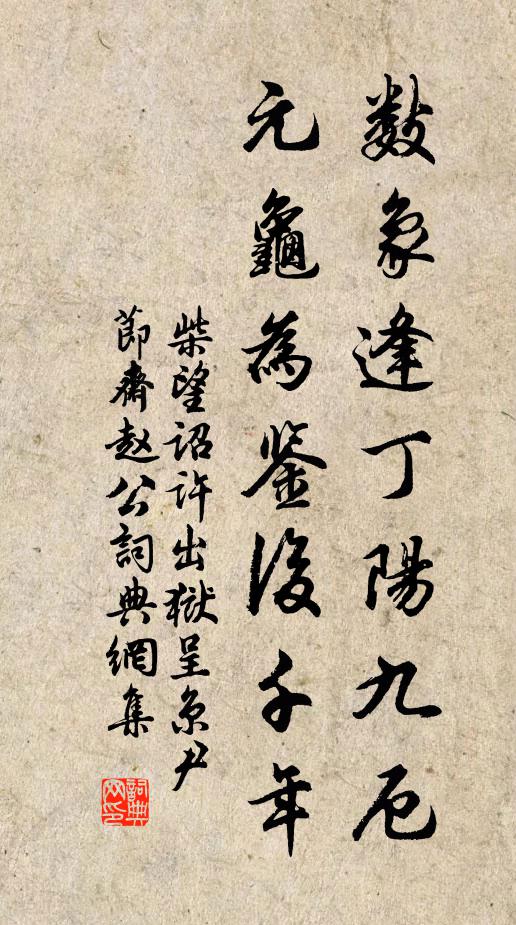 數象逢丁陽九厄
元龜為鑒後千年
柴望詔許出獄呈京尹
節齋趙公詞典網集
詞典網印